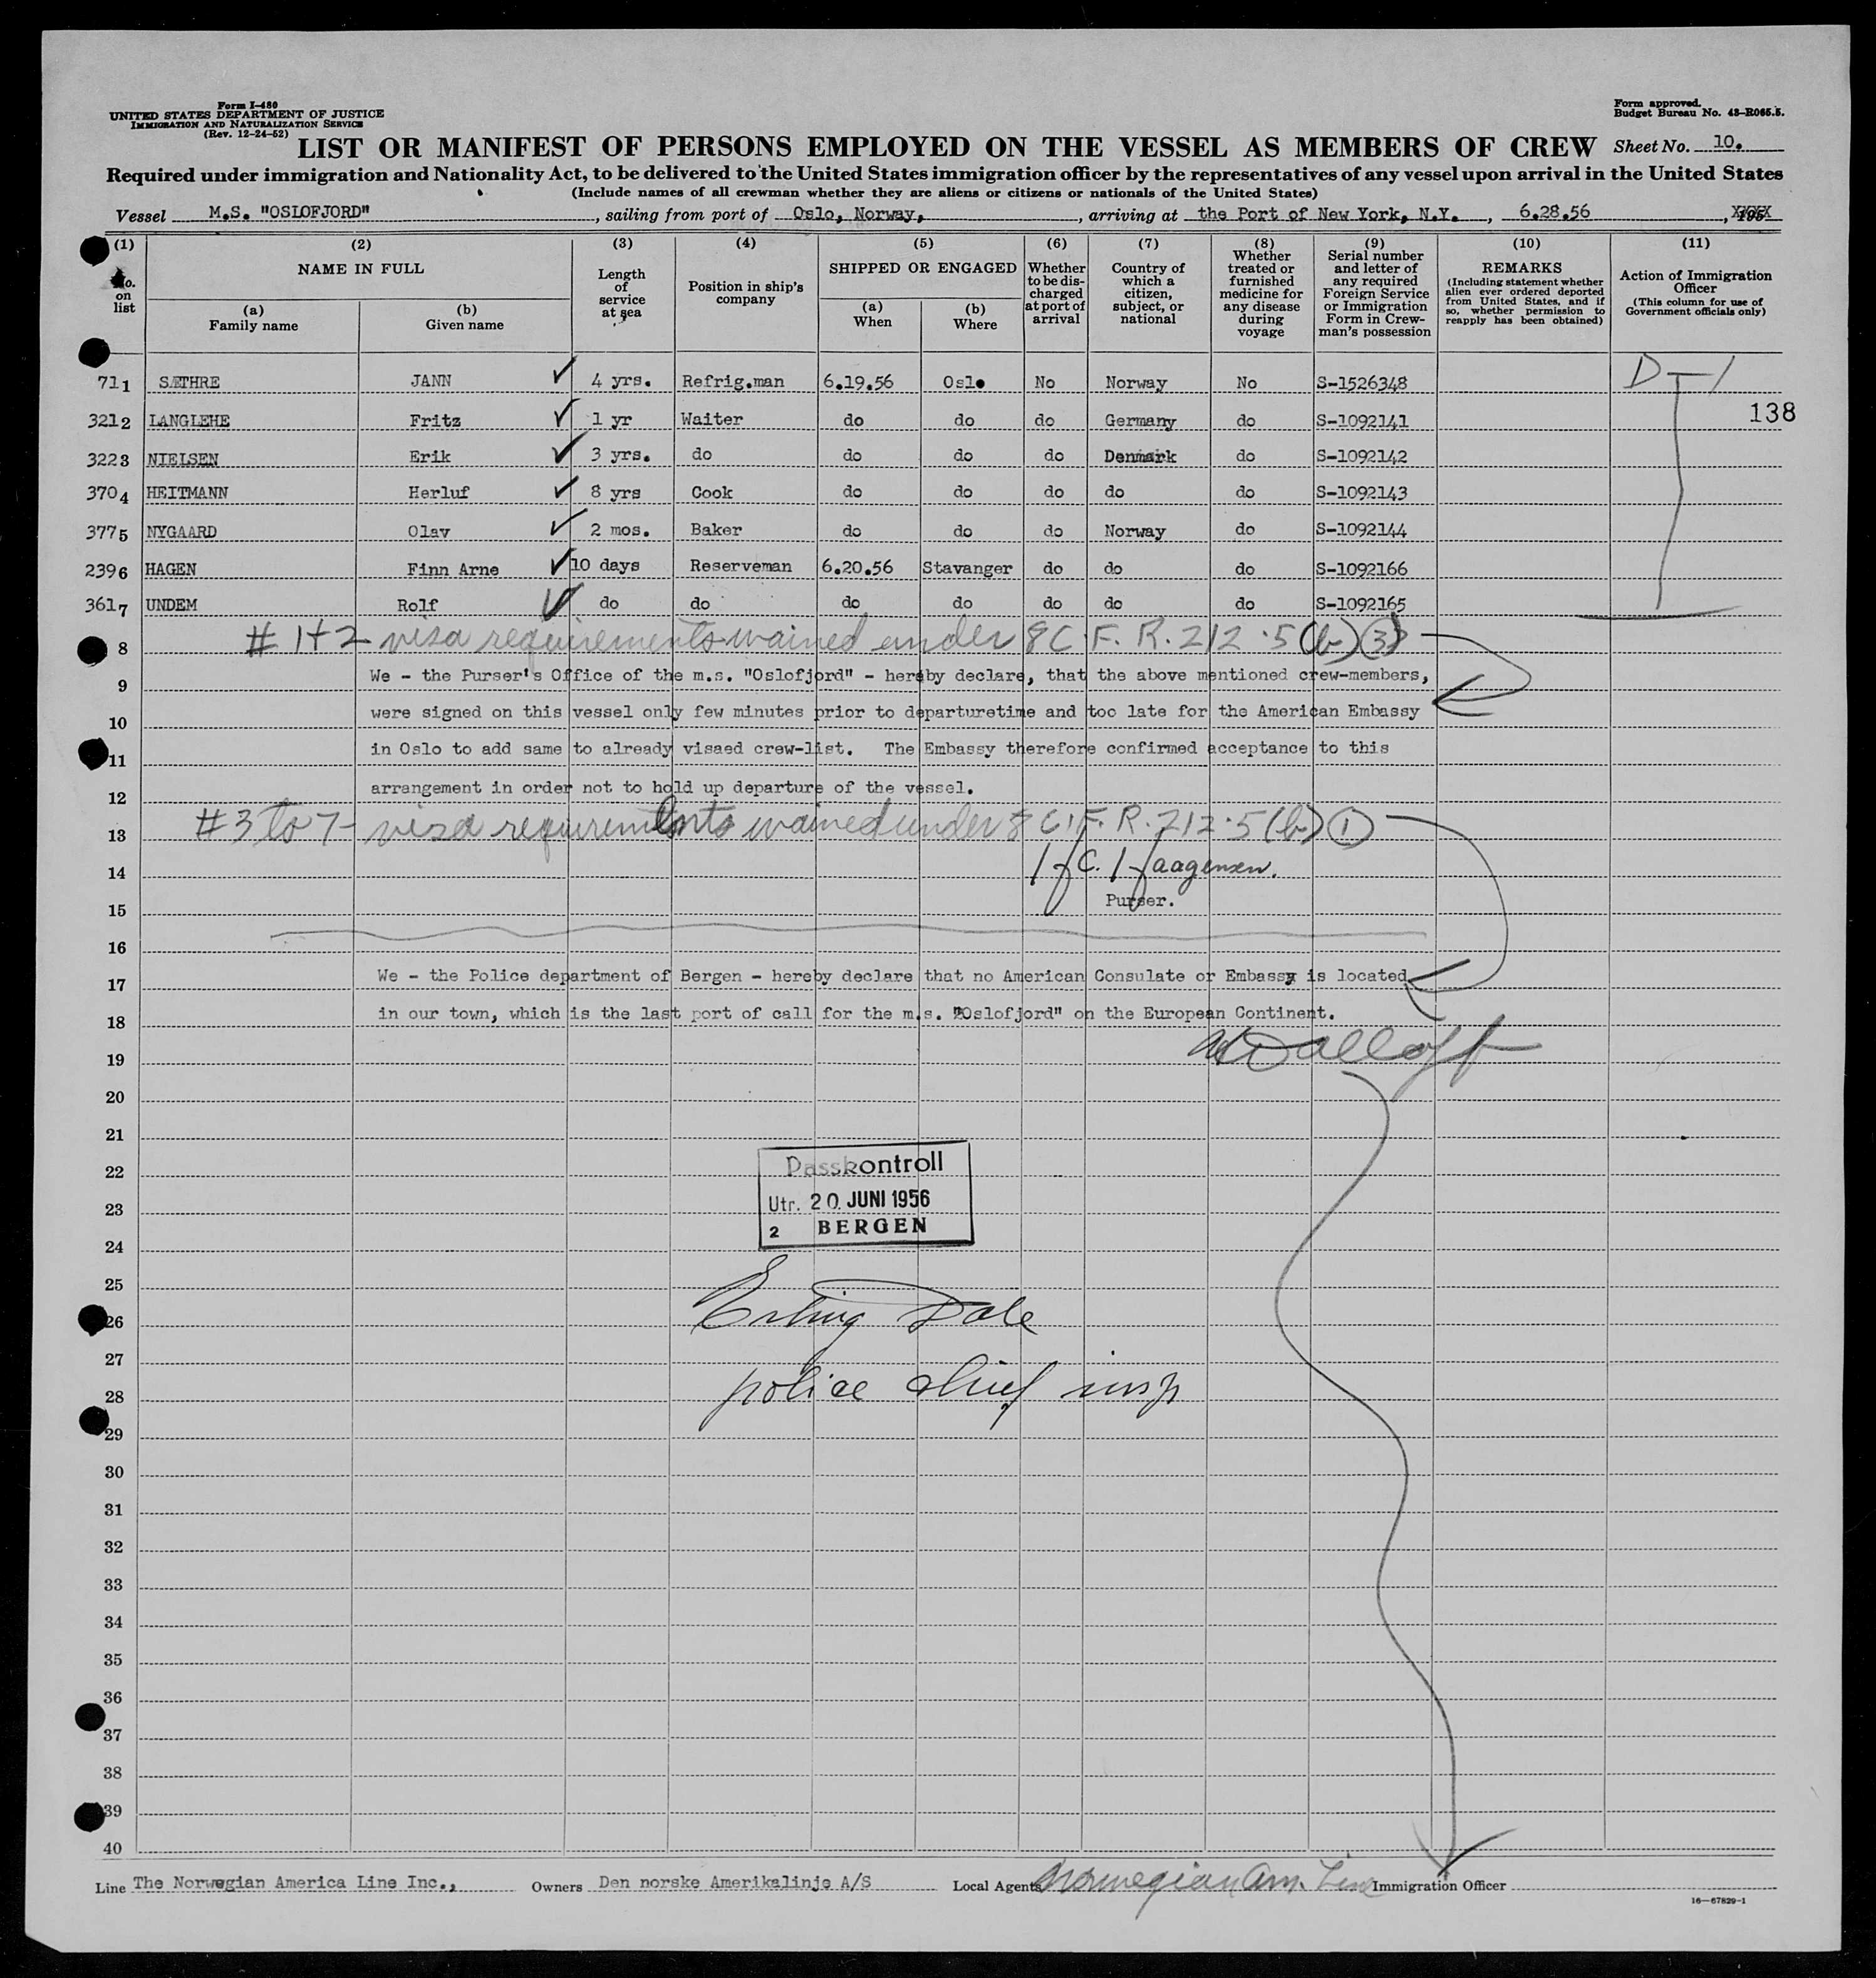 Form I-480
UNITED STATES DEPARTMENT OF JUSTICE
IMMIGRATION AND NATURALIZATION SERVICE
(Rev. 12-24-52)
Form approved.
Budget Bureau No. 43-R065.5.
LIST OR MANIFEST OF PERSONS EMPLOYED ON THE VESSEL AS MEMBERS OF CREW Sheet No. 10.
Required under immigration and Nationality Act, to be delivered to the United States immigration officer by the representatives of any vessel upon arrival in the United States
(Include names of all crewman whether they are aliens or citizens or nationals of the United States)
Vessel M.S. "OSLOFJORD", sailing from port of Oslo, Norway,, arriving at the Port of New York, N.Y., 6.28.56, 195
(1) No. on list
(2) NAME IN FULL
(a) Family name
(b) Given name
(3) Length of service at sea
(4) Position in ship's company
(5) SHIPPED OR ENGAGED
(a) When
(b) Where
(6) Whether to be discharged at port of arrival
(7) Country of which a citizen, subject, or national
(8) Whether treated or furnished medicine for any disease during voyage
(9) Serial number and letter of any required Foreign Service or Immigration Form in Crewman's possession
(10) REMARKS (Including statement whether alien ever ordered deported from United States, and if so, whether permission to reapply has been obtained)
(11) Action of Immigration Officer (This column for use of Government officials only)
71 1 SÆTHRE JANN ✓ 4 yrs. Refrig.man 6.19.56 Oslo No Norway No S-1526348 D-1
321 2 LANGLEHE Fritz ✓ 1 yr Waiter do do do Germany do S-1092141 138
322 3 NIELSEN Erik ✓ 3 yrs. do do do do Denmark do S-1092142
370 4 HEITMANN Herluf ✓ 8 yrs Cook do do do do do S-1092143
377 5 NYGAARD Olav ✓ 2 mos. Baker do do do Norway do S-1092144
239 6 HAGEN Finn Arne ✓ 10 days Reserveman 6.20.56 Stavanger do do do S-1092166
361 7 UNDEM Rolf ✓ do do do do do do do S-1092165
# 1+2 - visa requirements waived under 8 C.F.R. 212.5(b)(3)
8
We - the Purser's Office of the m.s. "Oslofjord" - hereby declare, that the above mentioned crew-members,
9
were signed on this vessel only few minutes prior to departuretime and too late for the American Embassy
10
in Oslo to add same to already visaed crew-list. The Embassy therefore confirmed acceptance to this
11
arrangement in order not to hold up departure of the vessel.
12
#3 to 7 - visa requirements waived under 8 C.F.R. 212.5(b)(1)
13
14
Purser.
15
16
We - the Police department of Bergen - hereby declare that no American Consulate or Embassy is located
17
in our town, which is the last port of call for the m.s. "Oslofjord" on the European Continent.
18
19
20
21
22
Passkontroll
23
Utr. 20. JUNI 1956
2 BERGEN
24
25
26
Erling Dale
27
28
police chief insp
29
30
31
32
33
34
35
36
37
38
39
40
Line The Norwegian America Line Inc., Owners Den norske Amerikalinje A/S Local Agents Norwegian Am. Line Immigration Officer
16-67829-1